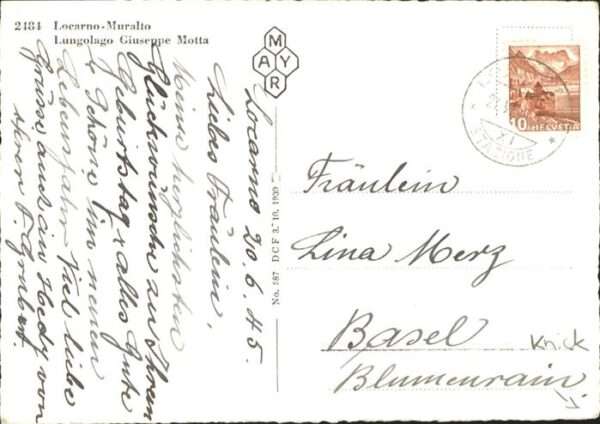 2484 Locarno-Muralto
Lungolago Giuseppe Motta
MAYR
Locarno 20.6.45.
Liebes Fräulein,
Meine herzlichsten
Glückwünsche zu Ihrem
Geburtstag & alles Gute
& Schöne im neuen
Lebensjahr. Viel liebe
Grüsse auch an Hedy von
Ihrem
No. 187 D C F 3. 10. 1939
10 HELVETIA
STAZIONE
Fräulein
Lina Merz
Basel
Knick
Blumenrain